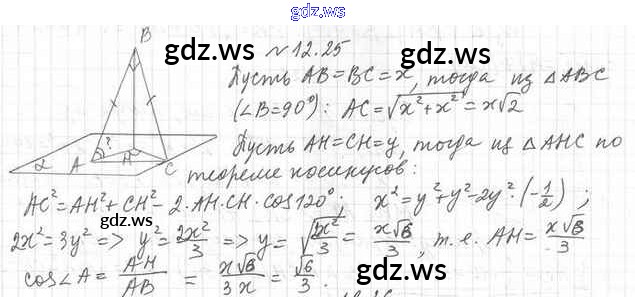 gdz.ws
B
№12.25
Пусть AB=BC=x, тогда из △ABC
(∠B=90°): AC=√x²+x²=x√2
Пусть AH=CH=y, тогда из △AHC по
теореме косинусов:
α A ? H C
AC²=AH²+CH²-2·AH·CH·cos120°; x²=y²+y²-2y²·(-1/2);
2x²=3y² => y²=2x²/3 => y=√2x²/3=x√6/3, т.е. AH=x√6/3
cos∠A=AH/AB=x√6/3x=√6/3.
gdz.ws
gdz.ws
gdz.ws
gdz.ws